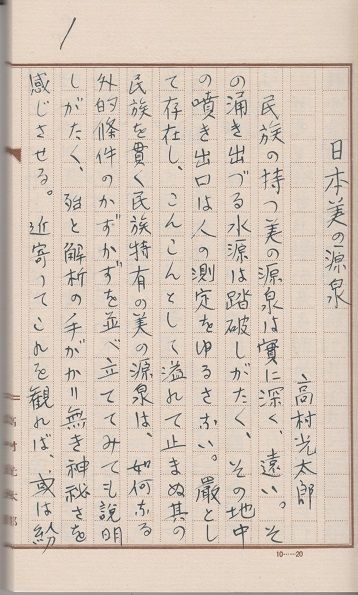 1
日本美の源泉
高村光太郎
民族の持つ美の源泉は實に深く、遠い。そ
の涌き出づる水源は踏破しがたく、その地中
の噴き出口は人の測定をゆるさない。厳とし
て存在し、こんこんとして溢れて止まぬ其の
民族を貫く民族特有の美の源泉は、如何なる
外的條件のかずかずを並べ立ててみても説明
しがたく、殆と解析の手がかり無き神秘さを
感じさせる。近寄つてこれを観れば、或は紛
高村光太郎
10……20